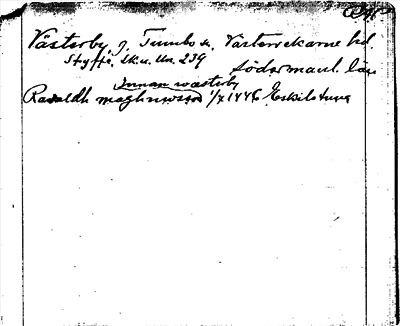 Västerby, J. Tumbo sn, Västerrekarne hd.
Styffe, Sk. u. Un. 239
Södermanl. län
Innan wasterby
Ravaldh maghnwsson 1/7 1446 Eskilstuna